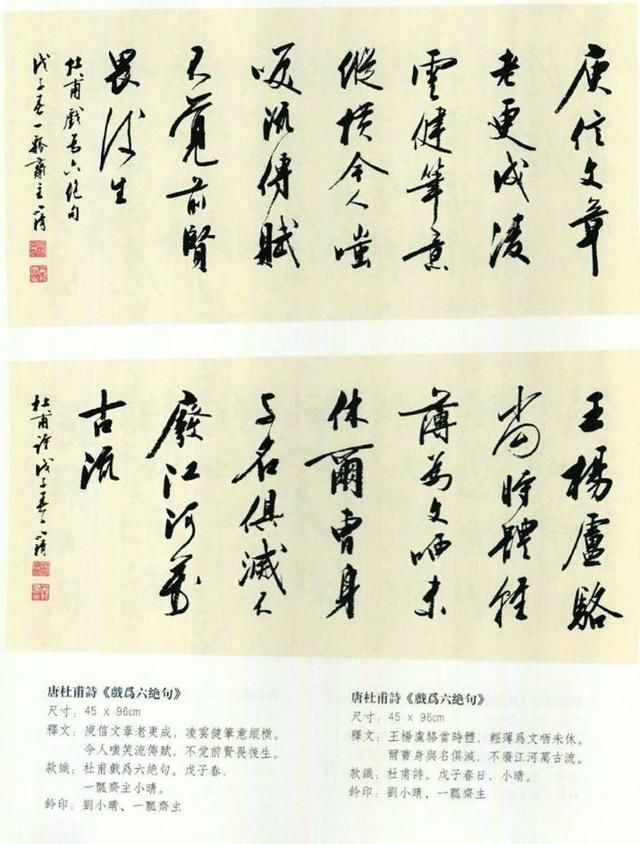 庾信文章
老更成凌
雲健筆意
縱横今人嗤
咲流傳賦
不覺前賢
畏後生
杜甫戲爲六絶句
戊子春一瓢齋主小晴
王楊盧駱
當時體輕
薄為文哂未
休爾曹身
与名俱滅不
廢江河萬
古流
杜甫詩戊子春日小晴
唐杜甫詩《戲爲六絶句》
尺寸：45 x 96cm
釋文：庾信文章老更成，凌雲健筆意縱橫。
今人嗤笑流傳賦，不覺前賢畏後生。
款識：杜甫戲爲六絶句。戊子春，
一瓢齋主小晴。
鈐印：劉小晴、一瓢齋主
唐杜甫詩《戲爲六絶句》
尺寸：45 x 96cm
釋文：王楊盧駱當時體，輕薄爲文哂未休。
爾曹身與名俱滅，不廢江河萬古流。
款識：杜甫詩。戊子春日，小晴。
鈐印：劉小晴、一瓢齋主